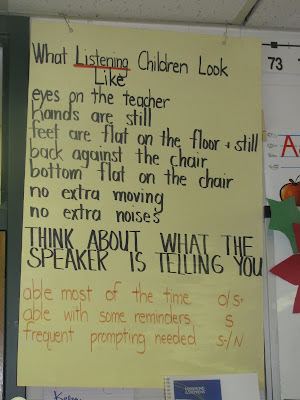 What Listening Children Look
Like
eyes on the teacher
hands are still
feet are flat on the floor + still
back against the chair
bottom flat on the chair
no extra moving
no extra noises
THINK ABOUT WHAT THE
SPEAKER IS TELLING YOU
able most of the time O/S+
able with some reminders S
frequent prompting needed S-/N
73